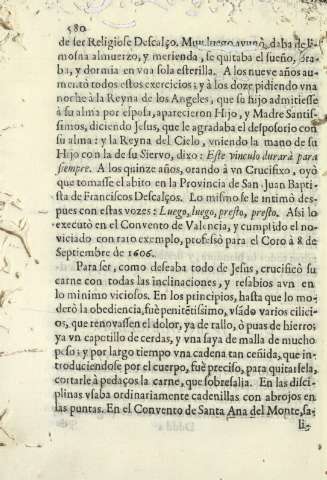 580
de ser Religioso Descalço. Muy luego ayunò, daba de li-
mosna almuerzo, y merienda, se quitaba el sueño, ora-
ba, y dormia en vna sola esterilla. A los nueve años au-
mentò todos estos exercicios; y à los doze pidiendo vna
noche à la Reyna de los Angeles, que su hijo admitiesse
à su alma por esposa, aparecieron Hijo, y Madre Santis-
simos, diciendo Jesus, que le agradaba el desposorio con
su alma: y la Reyna del Cielo, vniendo la mano de su
Hijo con la de su Siervo, dixo: Este vinculo durarà para
siempre. A los quinze años, orando à vn Crucifixo, oyò
que tomasse el abito en la Provincia de San Juan Bapti-
sta de Franciscos Descalços. Lo mismo se le intimò des-
pues con estas vozes: Luego, luego, presto, presto. Asi lo
executò en el Convento de Valencia, y cumplido el no-
viciado con raro exemplo, professò para el Coro à 8 de
Septiembre de 1606.
Para ser, como deseaba todo de Jesus, crucificò su
carne con todas las inclinaciones, y resabios aun en
lo minimo viciosos. En los principios, hasta que lo mo-
derò la obediencia, fuè penitētissimo, vsādo varios cilici-
os, que renovassen el dolor, ya de rallo, ò puas de hierro;
ya vn capotillo de cerdas, y vna saya de malla de mucho
peso; y por largo tiempo vna cadena tan ceñida, que in-
troduciendose por el cuerpo, fuè preciso, para quitarsela,
cortarle à pedaços la carne, que sobresalia. En las disci-
plinas vsaba ordinariamente cadenillas con abrojos en
las puntas. En el Convento de Santa Ana del Monte, sa-
li-